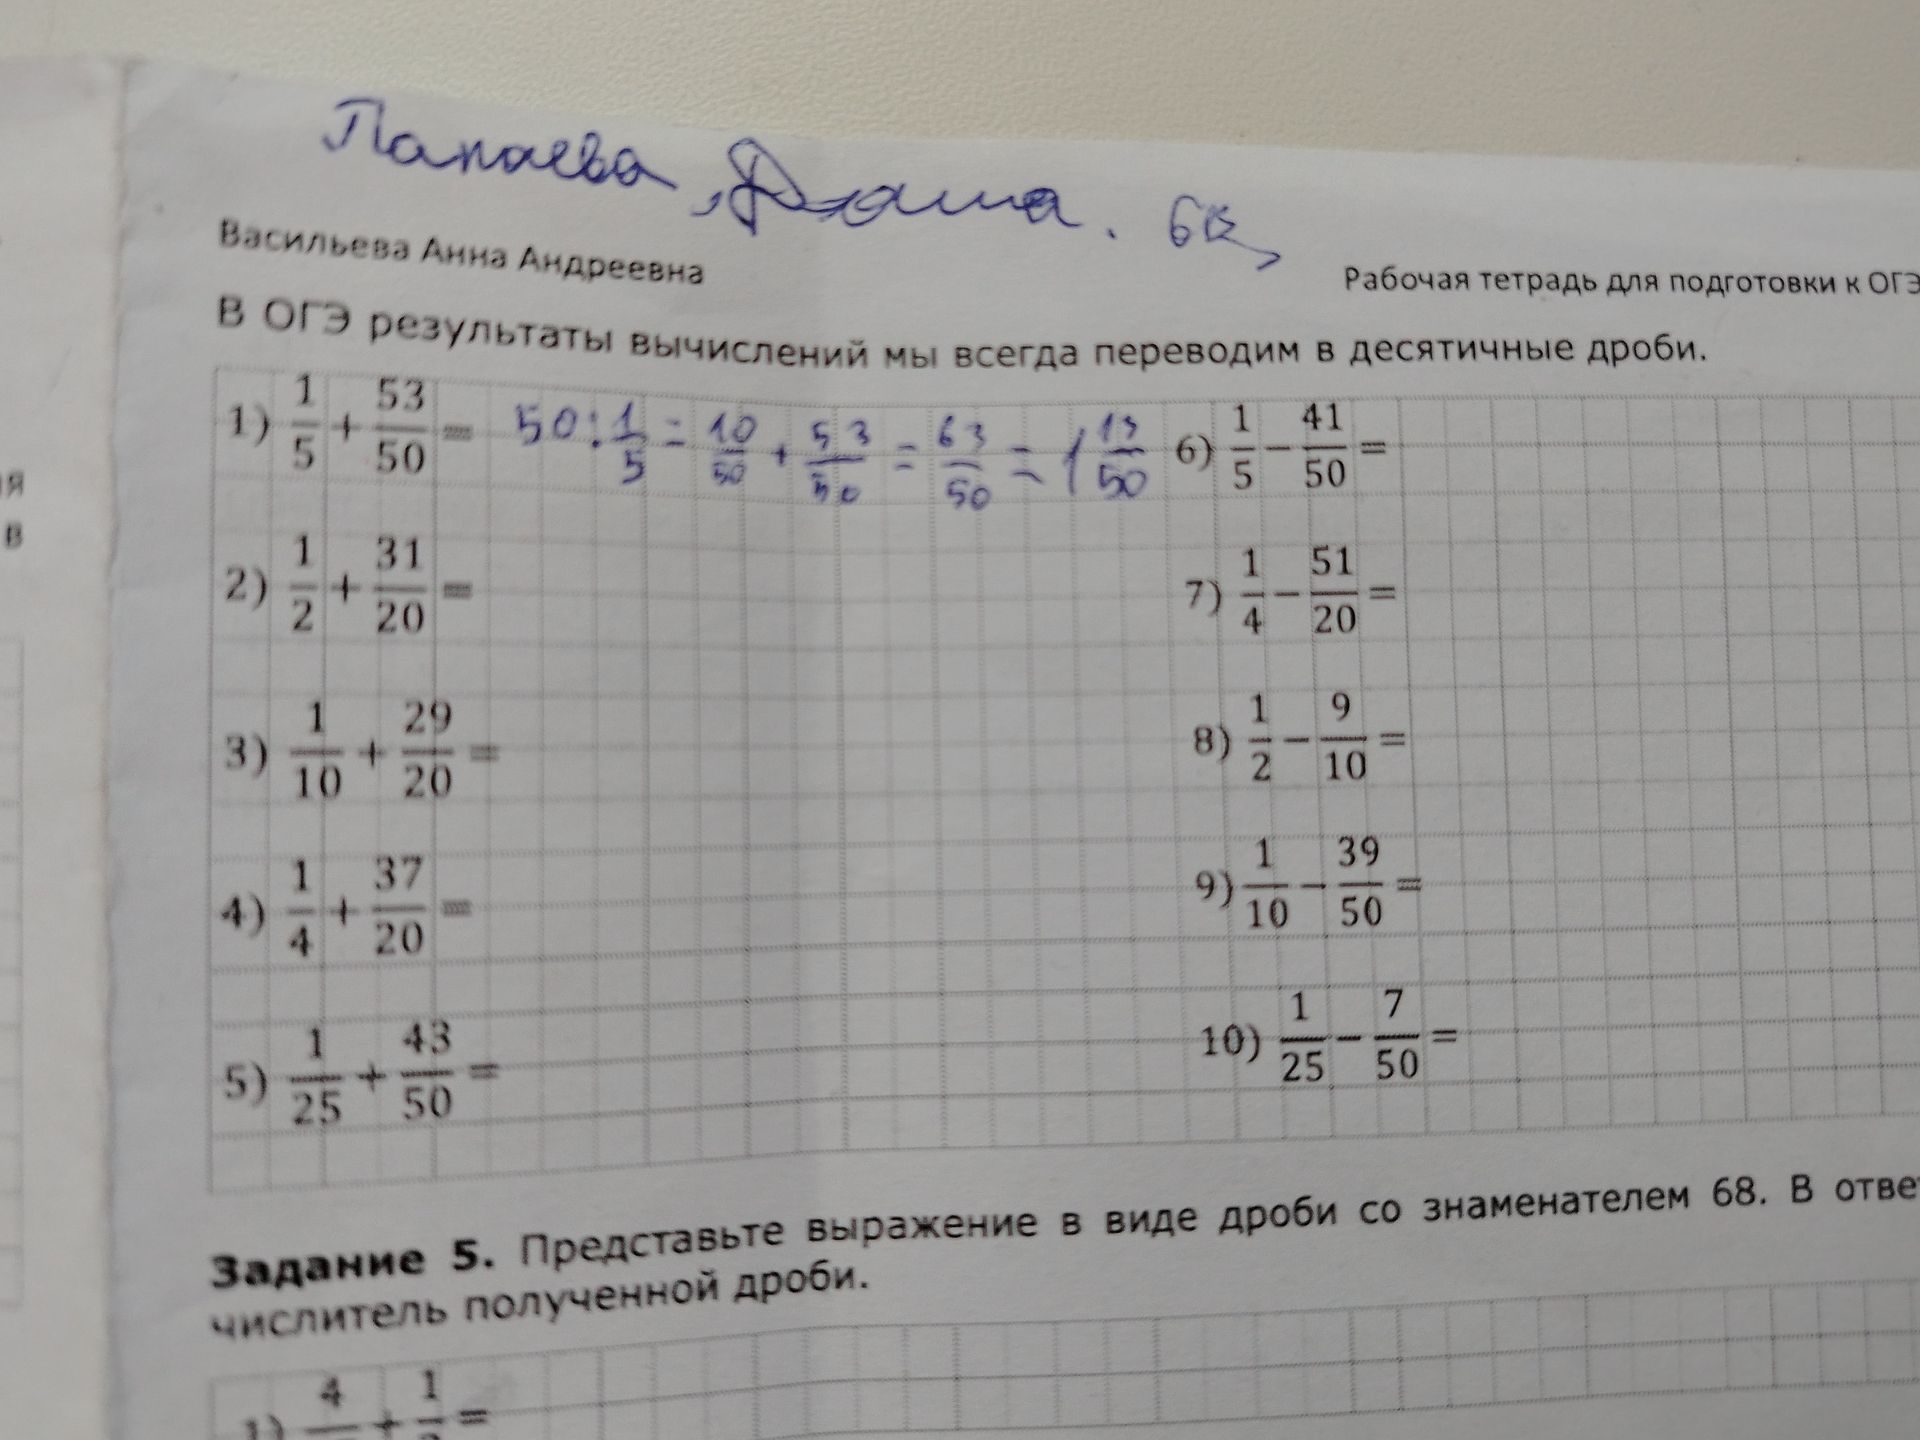 Папаева Даша. 6В
Васильева Анна Андреевна
Рабочая тетрадь для подготовки к ОГЭ
В ОГЭ результаты вычислений мы всегда переводим в десятичные дроби.
1) 1/5 + 53/50 = 50 : 1/5 = 10/50 + 53/50 = 63/50 = 1 13/50
2) 1/2 + 31/20 =
3) 1/10 + 29/20 =
4) 1/4 + 37/20 =
5) 1/25 + 43/50 =
6) 1/5 − 41/50 =
7) 1/4 − 51/20 =
8) 1/2 − 9/10 =
9) 1/10 − 39/50 =
10) 1/25 − 7/50 =
Задание 5. Представьте выражение в виде дроби со знаменателем 68. В
числитель полученной дроби.